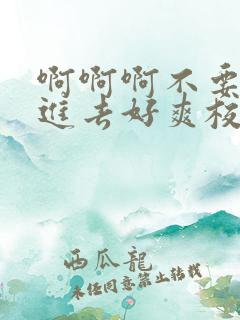 啊啊啊不要
進去好爽极
西瓜龍
未任同意禁止转载